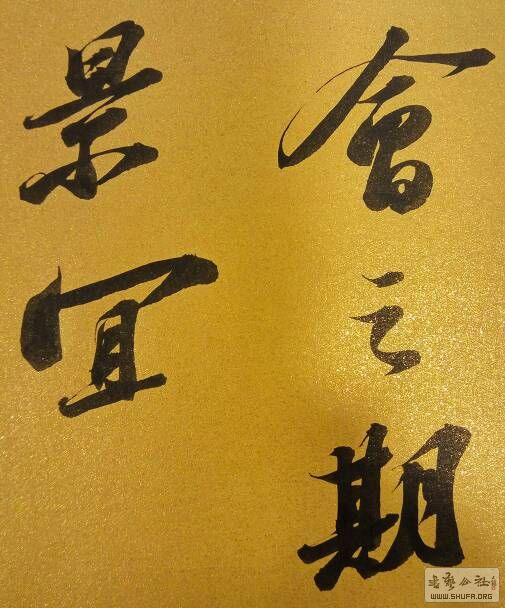 會之期
景宜
書聚公社
WWW.SHUFA.ORG